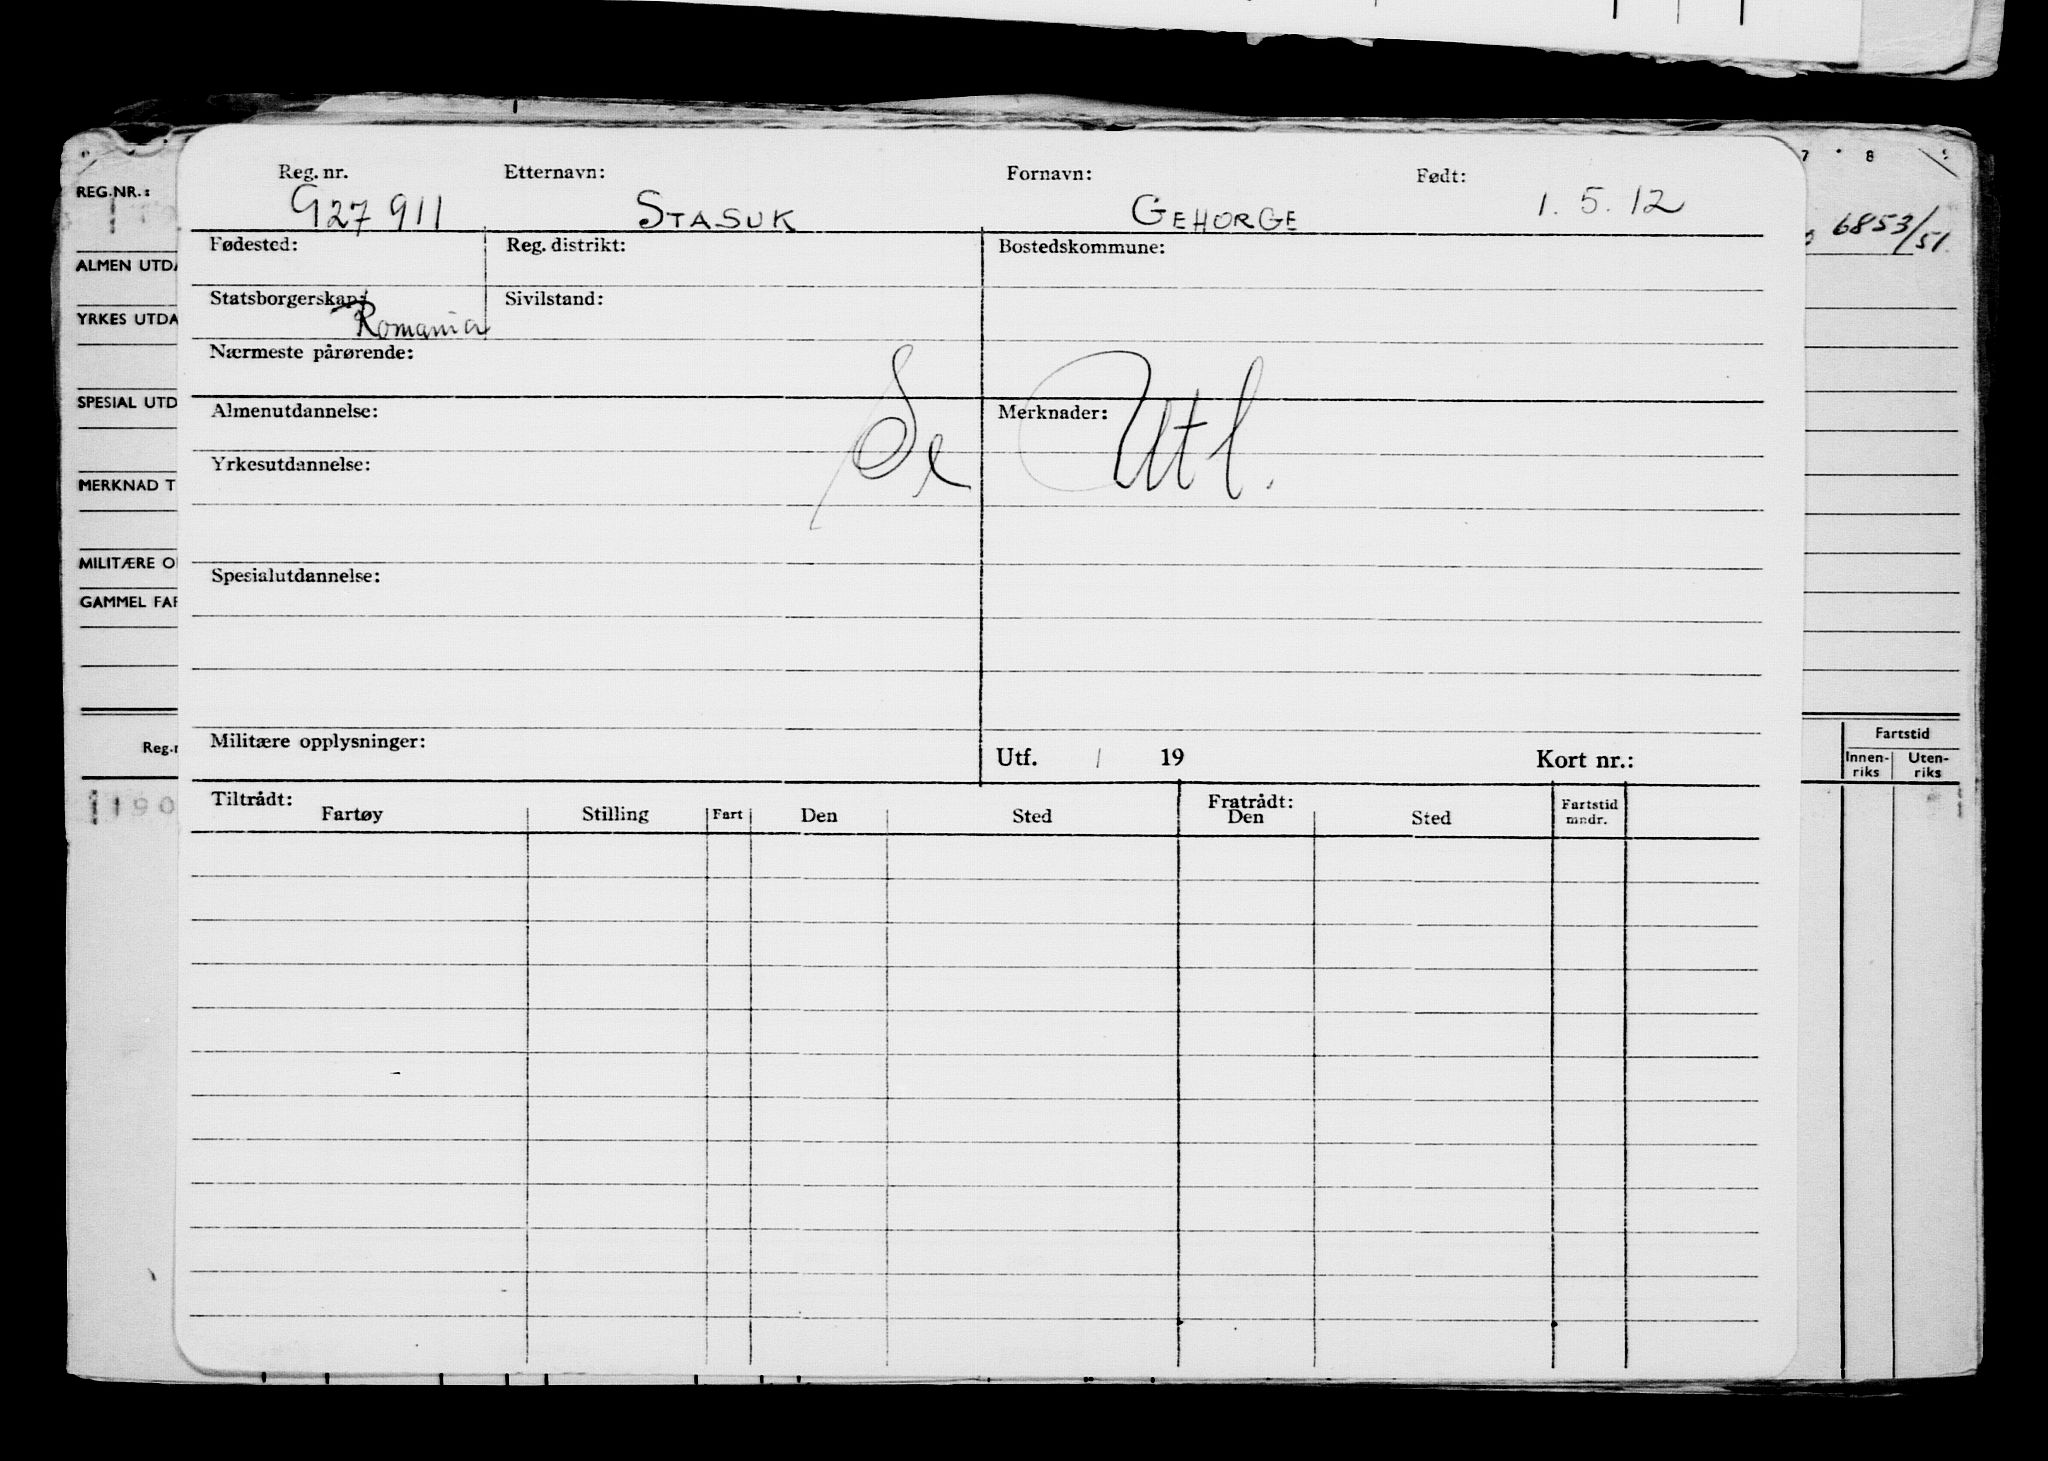 Reg. nr. Etternavn: Fornavn: Født:
927 911 STASUK GEHORGE 1. 5. 12
Fødested: Reg. distrikt: Bostedskommune:
Statsborgerskap: Sivilstand:
Romania
Nærmeste pårørende:
Almenutdannelse: Merknader:
Se Utl.
Yrkesutdannelse:
Spesialutdannelse:
Militære opplysninger:
Utf. / 19 Kort nr.:
Tiltrådt: Fratrådt: Fartstid
Fartøy Stilling Fart Den Sted Den Sted mndr.
REG.NR.:
ALMEN UTDA
YRKES UTDA
SPESIAL UTD
MERKNAD T
MILITÆRE O
GAMMEL FAR
Reg.n
190
7 8
6853/51
Fartstid
Innen- Uten-
riks riks